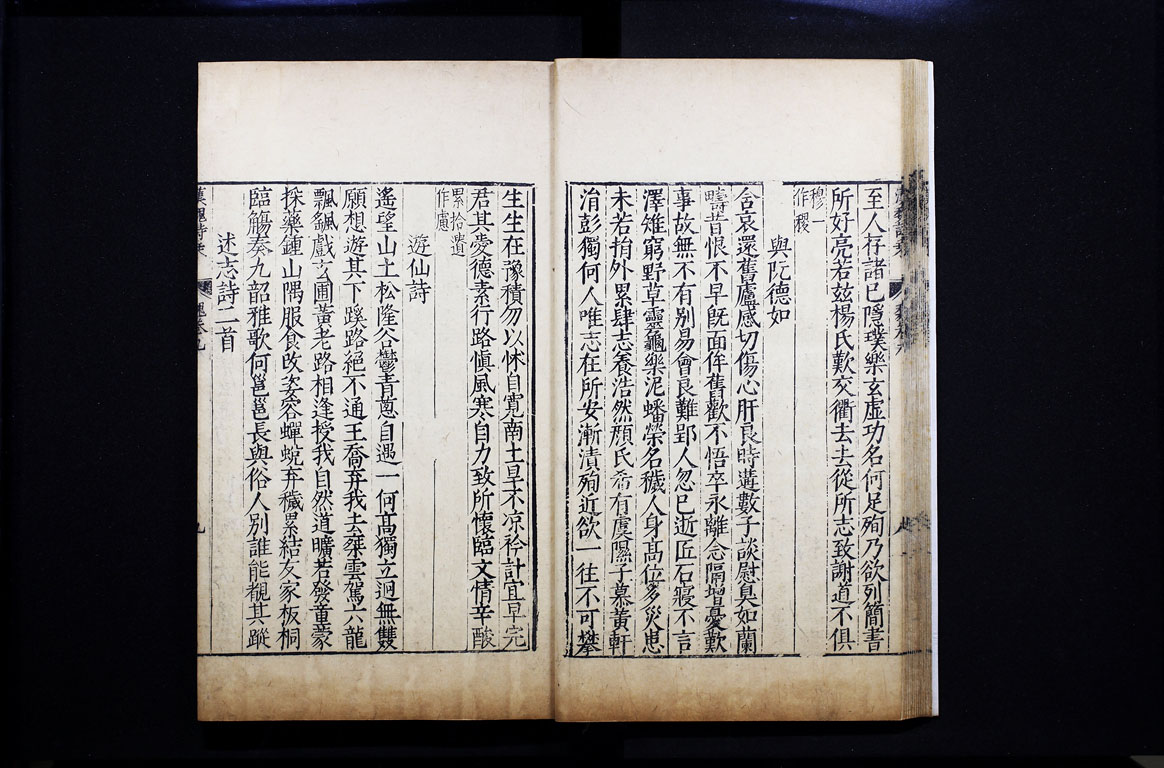 至人存諸己隱璞樂玄虛功名何足殉乃欲列簡書
所好亮若兹楊氏歎交衢去去從所志致謝道不俱
穆一
作稷
與阮德如
含哀還舊廬感切傷心肝良時遘數子談慰臭如蘭
疇昔恨不早旣面侔舊歡不悟卒永離念隔增憂歎
事故無不有别易會良難郢人忽已逝匠石寢不言
澤雉窮野草靈龜樂泥蟠榮名穢人身髙位多災患
未若捐外累肆志養浩然顔氏希有虞隰子慕黃軒
涓彭獨何人唯志在所安漸漬殉近欲一往不可攀
生生在豫積勿以怵自寛南土旱不凉衿計宜早完
君其愛德素行路愼風寒自力致所懷臨文情辛酸
累拾遺
作慮
遊仙詩
遙望山上松隆谷鬱青蔥自遇一何髙獨立迥無雙
願想遊其下蹊路絕不通王喬弃我去椉雲駕六龍
飄颻戲玄圃黃老路相逢授我自然道曠若發童蒙
採藥鍾山隅服食改姿容蟬蛻弃穢累結友家板桐
臨觴奏九韶雅歌何邕邕長與俗人别誰能覩其蹤
述志詩二首
漢魏詩
魏卷九
九